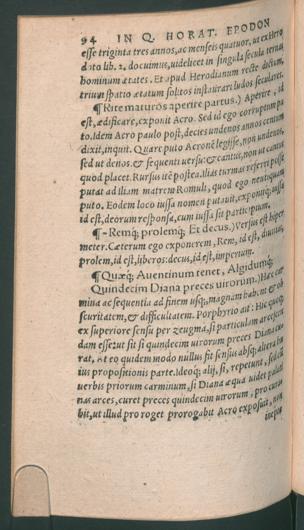 94 IN Q. HORAT. EPODON
esse triginta tres annos, ac menseis quatuor, ut ex Hero
doto lib. 2. docuimus, uidelicet in singula secula ternas
hominum ætates. Et apud Herodianum recte dictum,
trium spatio ætatum solitos instaurari ludos seculares.
¶ Rite maturos aperire partus.) Aperire, id
est, ædificare, exponit Acro. Sed id ego corruptum pu
to. Idem Acro paulo post, decies undenos annos centum
dixit, inquit. Quare puto Acronē legisse, non undenos,
sed ut denos. & sequenti uersu: & cantus, non ut cantus
quod placet. Rursus itē postea. Ilias turmas referri posse
putat ad Iliam matrem Romuli, quod ego neutiquam
puto. Eodem loco iussa nomen putauit, exponitq́; iussa
id est, deorum responsa, cum iussa sit participium.
¶ -Remq́; prolemq́; Et decus.) Versus est hiper
meter. Cæterum ego exponerem, Rem, id est, diuitias,
prolem, id est, liberos: decus, id est, imperium.
¶ Quæq́; Auentinum tenet, Algidumq́;
Quindecim Diana preces uirorum.) Hæc car
mina ac sequentia ad finem usq́;, magnam habent & ob
scuritatem, & difficultatem. Porphyrio ait: Hic quoq́;
ex superiore sensu per zeugma, si particulam
dam esset ut sit si quindecim uirorum preces Diana cu
rat, at eo quidem modo nullus fit sensus absq́; altera
ius propositionis parte. Ideoq́; alij, si, repetunt, sed
uerbis priorum carminum, si Diana æqua uidet palati
nas arces, curet preces quindecim uirorum, pro curat
bit, ut illud pro roget prorogabit Acro exposuit, non